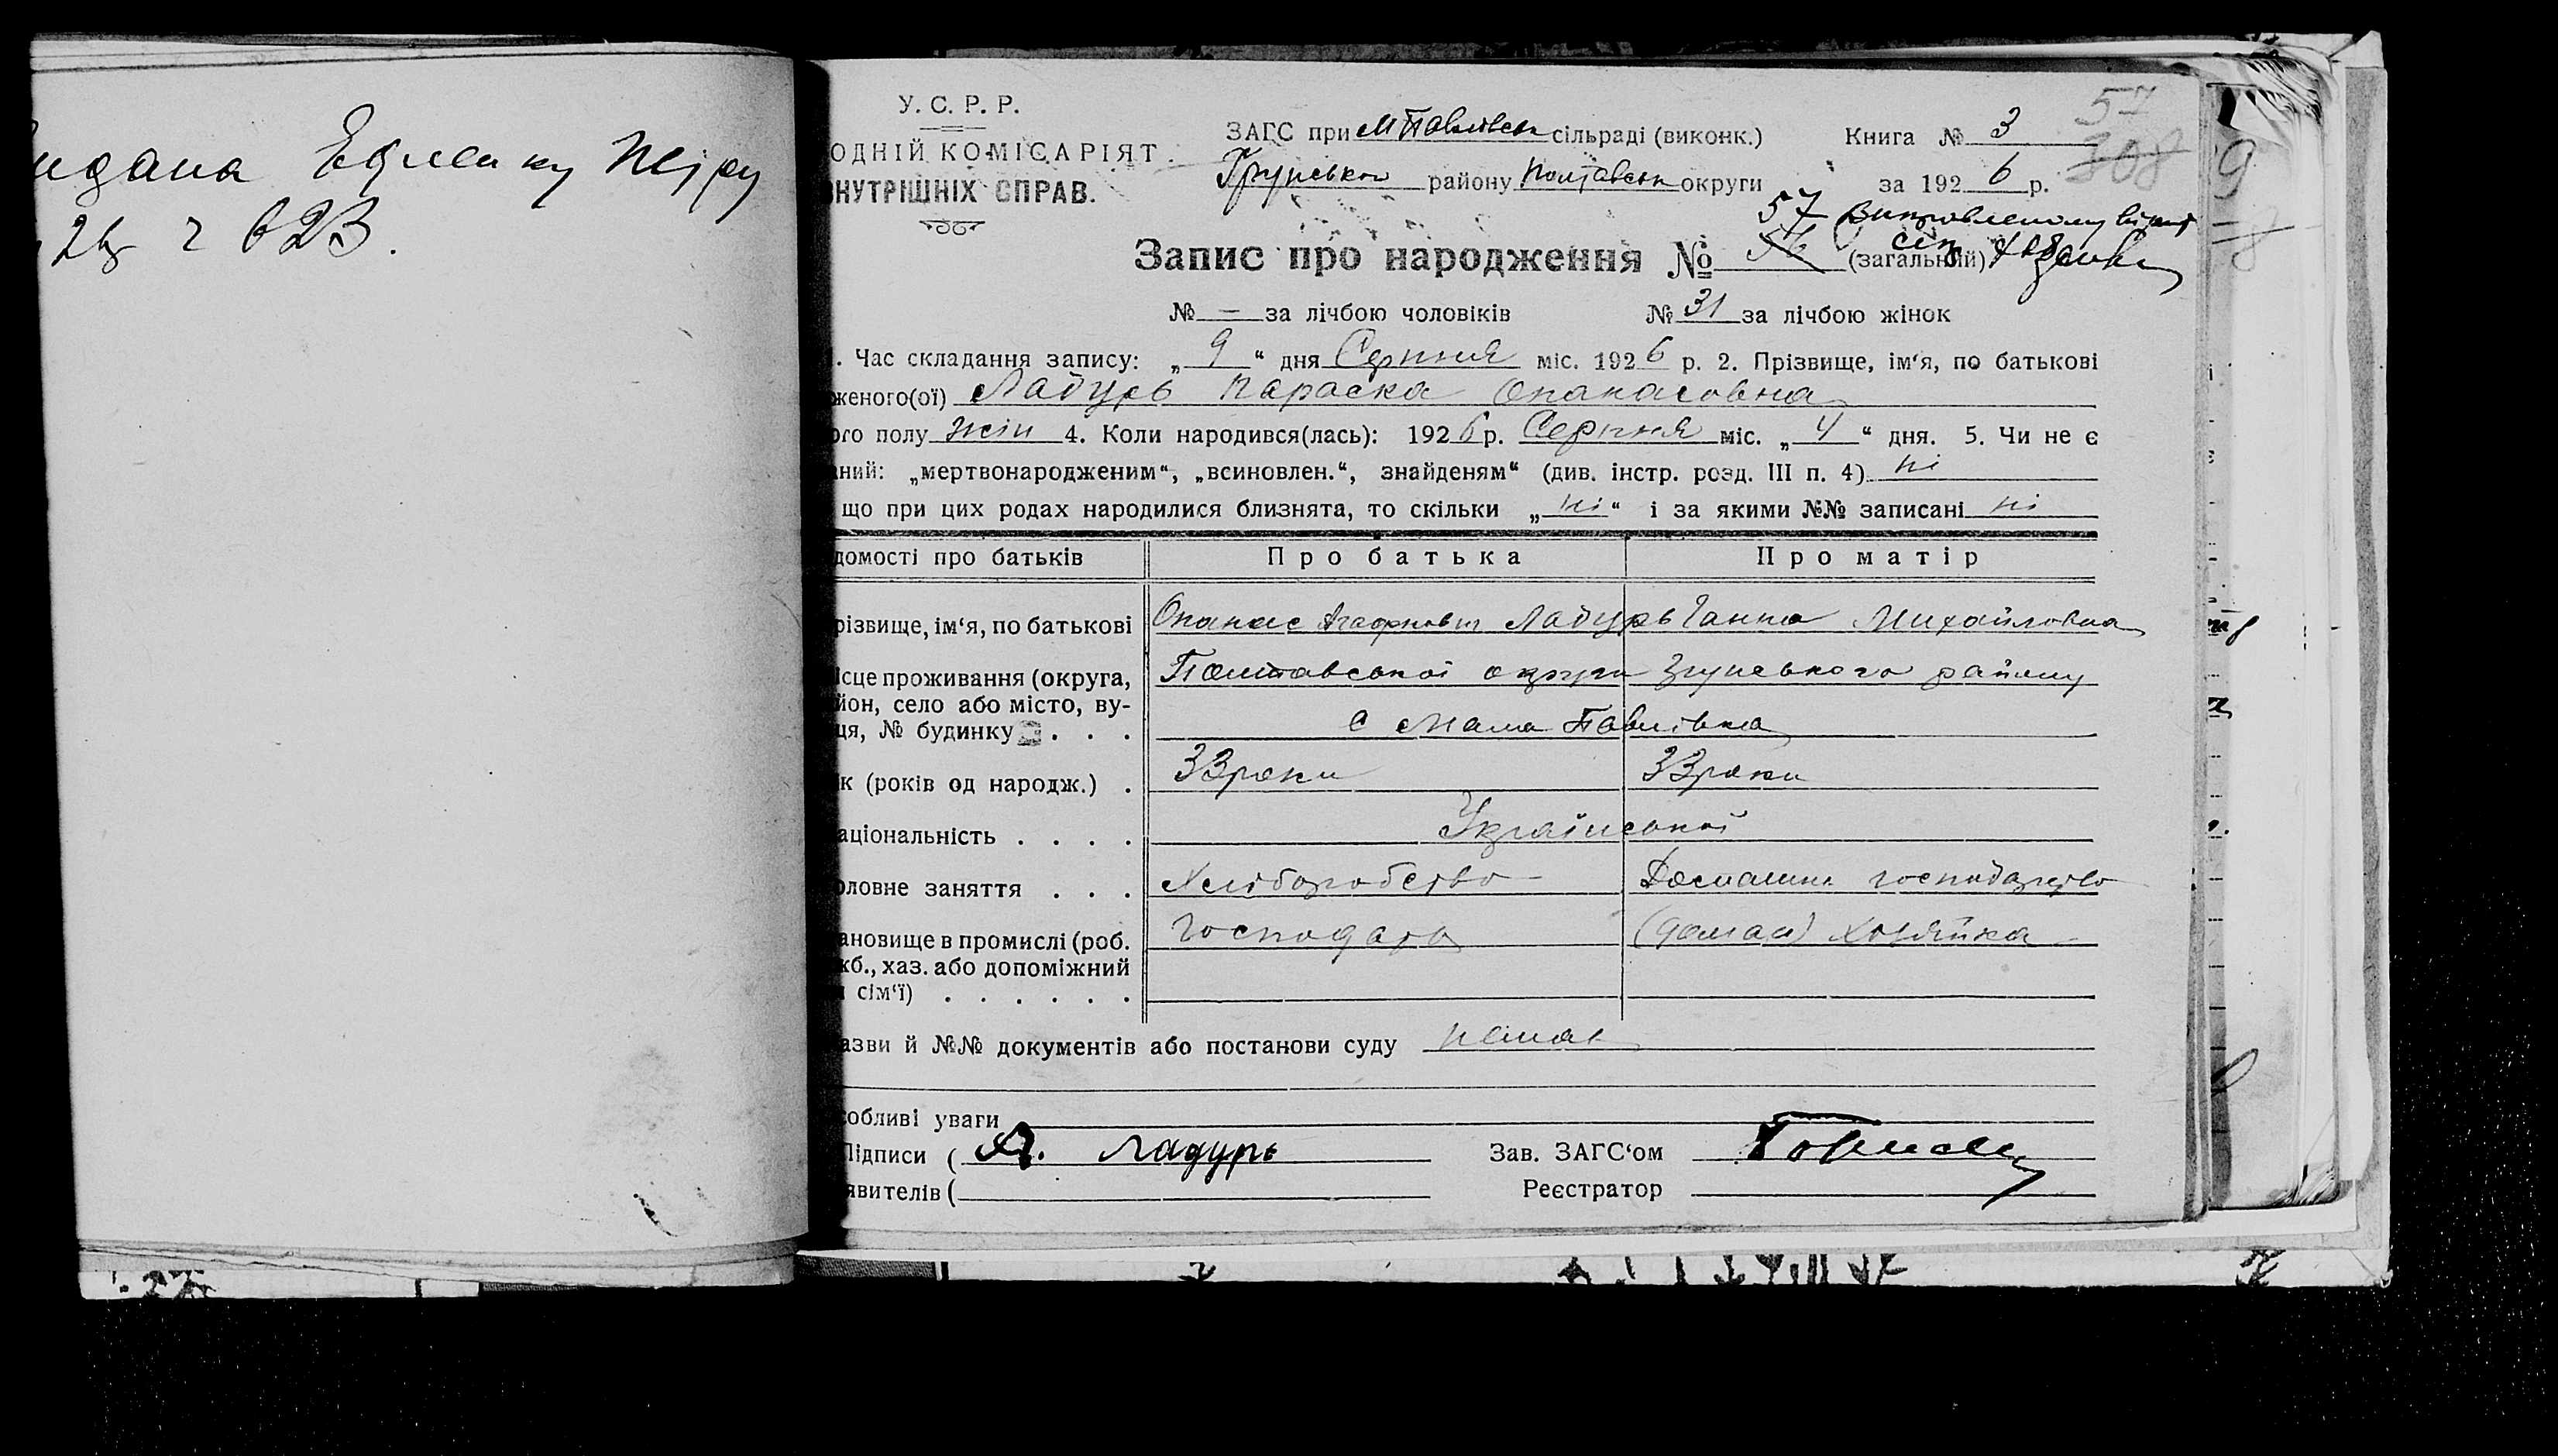 Ефименку Петру
У. С. Р. Р.
ОДНІЙ КОМІСАРІЯТ
НУТРІШНІХ СПРАВ.
ЗАГС при М Павлівськ сільраді (виконк.)
Грунського району Полтавськ округи
Книга № 3
57
308
за 1926 р.
57 Виправленому вірить
Запис про народження № 56 (загальний)
№ — за лічбою чоловіків № 31 за лічбою жінок
. Час складання запису: „ 9 “ дня Серпня міс. 1926 р. 2. Прізвище, ім‘я, по батькові
женого(ої) Ладурь Параска Опанасовна
ого полу жін 4. Коли народився(лась): 1926 р. Серпня міс. „ 4 “ дня. 5. Чи не є
аний: „мертвонародженим“, „всиновлен.“, знайденям“ (див. інстр. розд. III п. 4) ні
що при цих родах народилися близнята, то скільки „ ні “ і за якими №№ записані ні
домості про батьків Про батька Про матір
різвище, ім‘я, по батькові Опанас Агафнович Ладурь Ганна Михайловна
ісце проживання (округа, Полтавської округи Грунського району
йон, село або місто, ву-
ця, № будинку . . . с Мала Павлівка
к (років од народж.) . 33 роки 33 роки
аціональність . . . . Української
оловне заняття . . . Хліборобство Домашне господарство
ановище в промислі (роб. Господарь (домаш) хозяйка
жб., хаз. або допоміжний
сім‘ї) . . . . . .
азви й №№ документів або постанови суду немає
собливі уваги
Підписи ( А. Ладурь Зав. ЗАГС‘ом
явителів ( Реєстратор